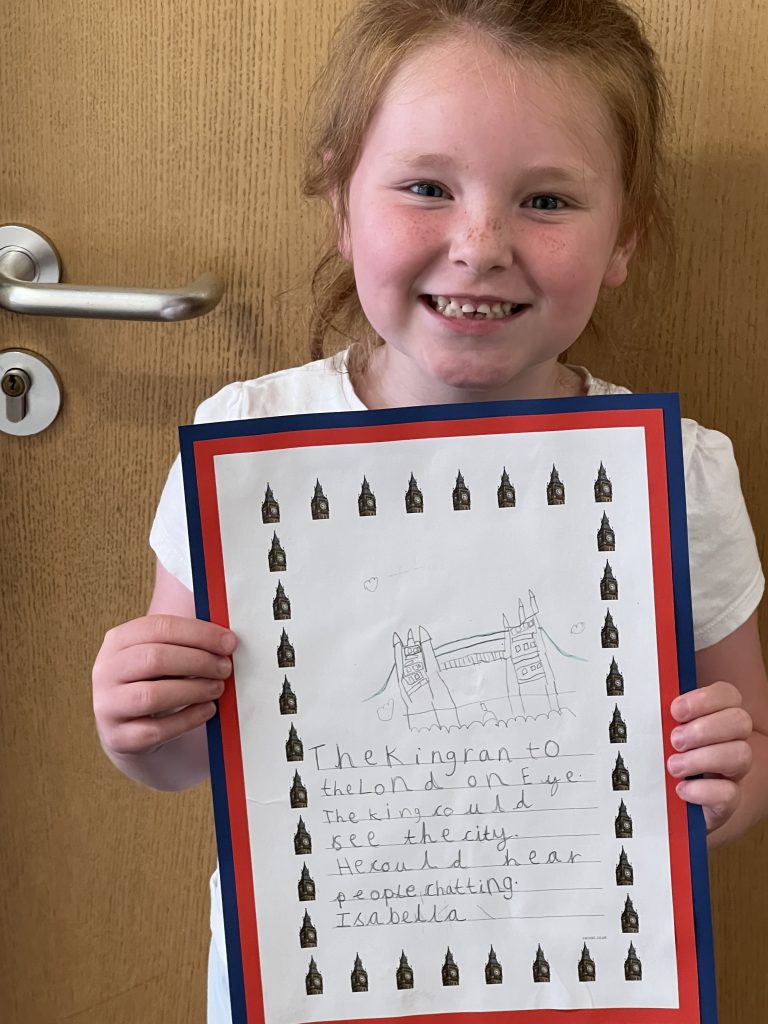 The King ran to
the Lond on Eye.
The king could
see the city.
He could hear
people chatting.
Isabella